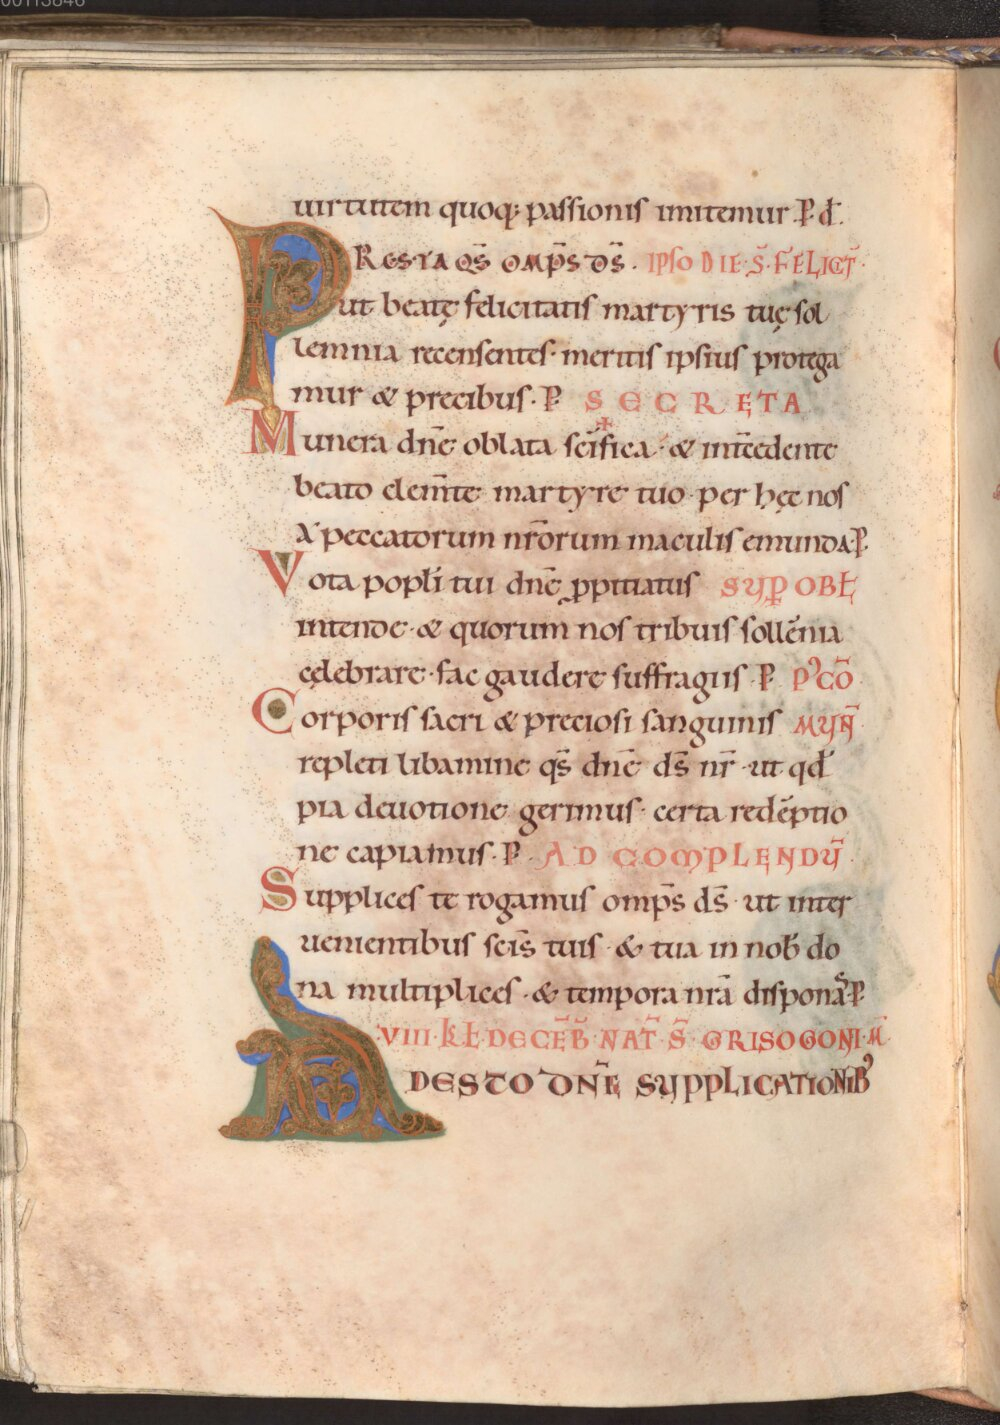 uirtutem quoq; passionis imitemur. P. d̄.
PRESTA QS̄ OMP̄S D̄S. IPSO DIE. S̄. FELICIT̄.
ut beatę felicitatis martyris tuę sol
lemnia recensentes. meritis ipsius protega
mur & precibus. P. SECRETA
Munera dn̄e oblata sc̄ifica. & int̄cedente
beato clem̄te martyre tuo. per hęc nos
a peccatorum nr̄orum maculis emunda. P.
Vota popli̅ tui dn̄e ꝓpitiatus SUP̱ OBL̄
intende. & quorum nos tribuis sollēnia
cęlebrare. fac gaudere suffragiis. P. P᾽CŌ
Corporis sacri & preciosi sanguinis MUN̄
repleti libamine qs̄ dn̄e ds̄ nr̄. ut qd̄
pia deuotione gerimus. certa redēptio
ne capiamus. P. AD COMPLENDŪ
Supplices te rogamus omp̄s ds̄. ut inter
uenientibus sc̄is tuis. & tua in nob̄ do
na multiplices. & tempora nr̄a disponas. P.
VIII. KŁ. DECĒB̄. NAT̄. S̄. GRISOGONI. M̄
ADESTO DN̄E SUPPLICATIONIB᾽